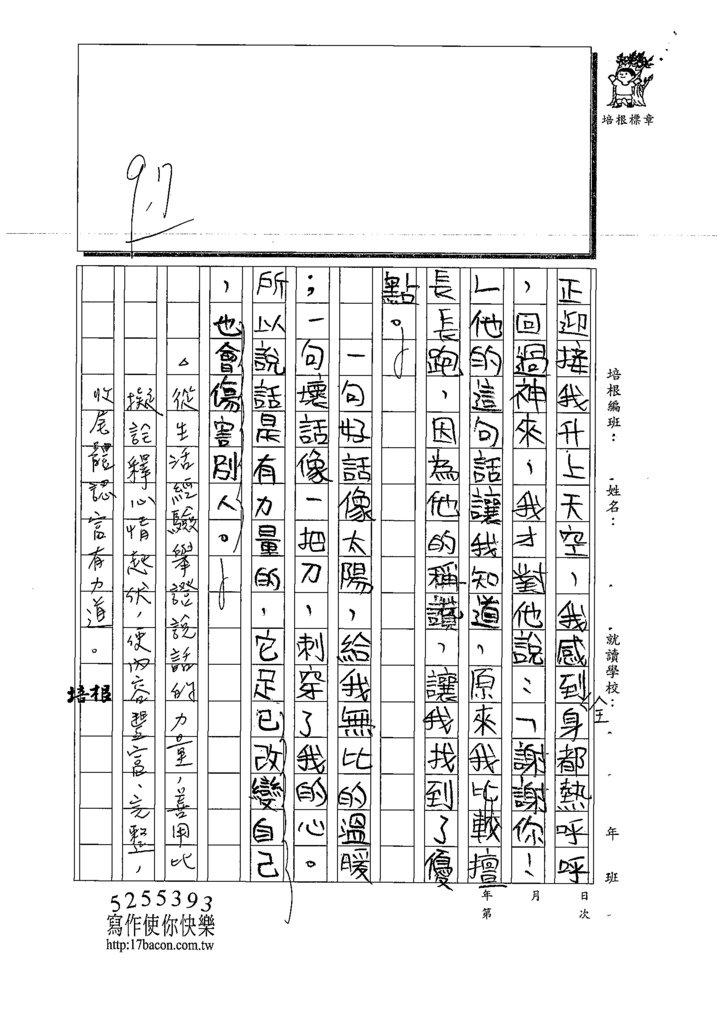 培根標章
9.7
培根編班：
姓名：
就讀學校：
年
班
正迎接我升上天空，我感到身都熱呼呼
全
，回過神來，我才對他說：「謝謝你！
」他的這句話讓我知道，原來我比較擅
長長跑，因為他的稱讚，讓我找到了優
點。
一句好話像太陽，給我無比的溫暖
；一句壞話像一把刀，刺穿了我的心。
所以說話是有力量的，它足已改變自己
，也會傷害別人。
從生活經驗舉證說話的力量，善用比
擬詮釋心情起伏，使內容豐富、完整，
收尾體認富有力道。
培根
年
第
月
日
次
5255393
寫作使你快樂
http:17bacon.com.tw